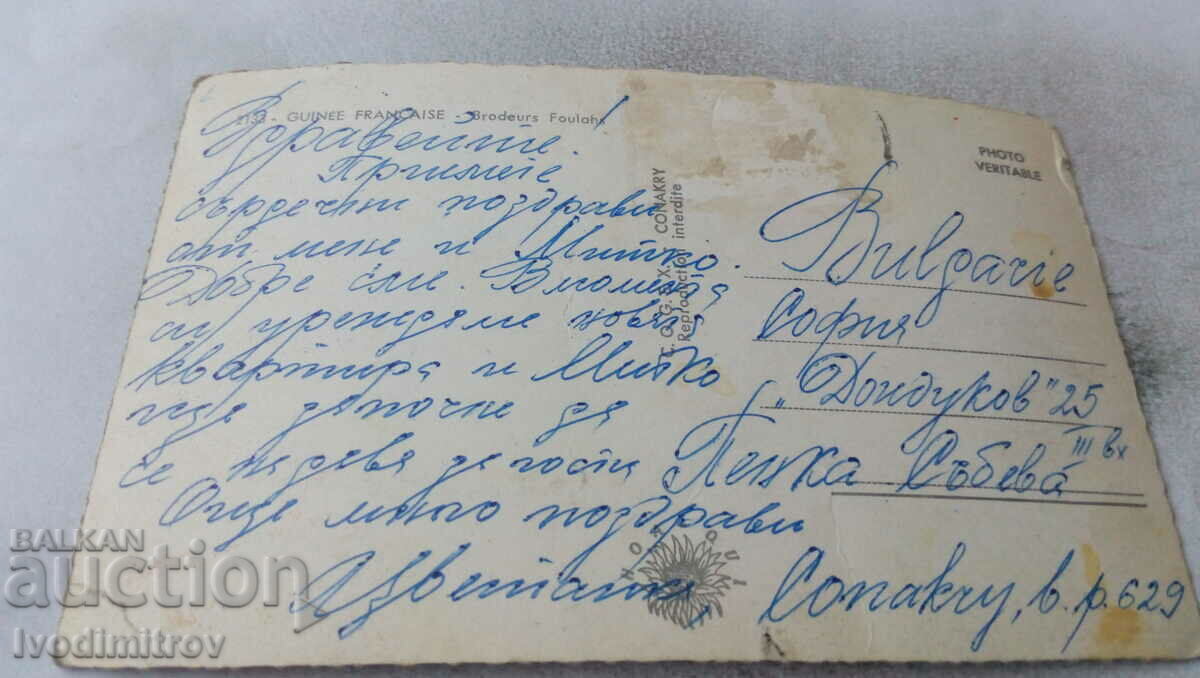 2133 - GUINÉE FRANÇAISE - Brodeurs Foulahs
Здравейте!
Приемете
сърдечни поздрави
от мене и Митко.
Добре сме. В момента
си уреждаме новата
квартира и Митко
ще започне да
се надява за гости
Още много поздрави
Цветана
C. O. G. E. X. CONAKRY
Reproduction interdite
PHOTO
VERITABLE
Bulgarie
София
"Дондуков" 25
III вх
Пенка Събева
Conakry, b.p. 629
BALKAN
auction
Ivodimitrov